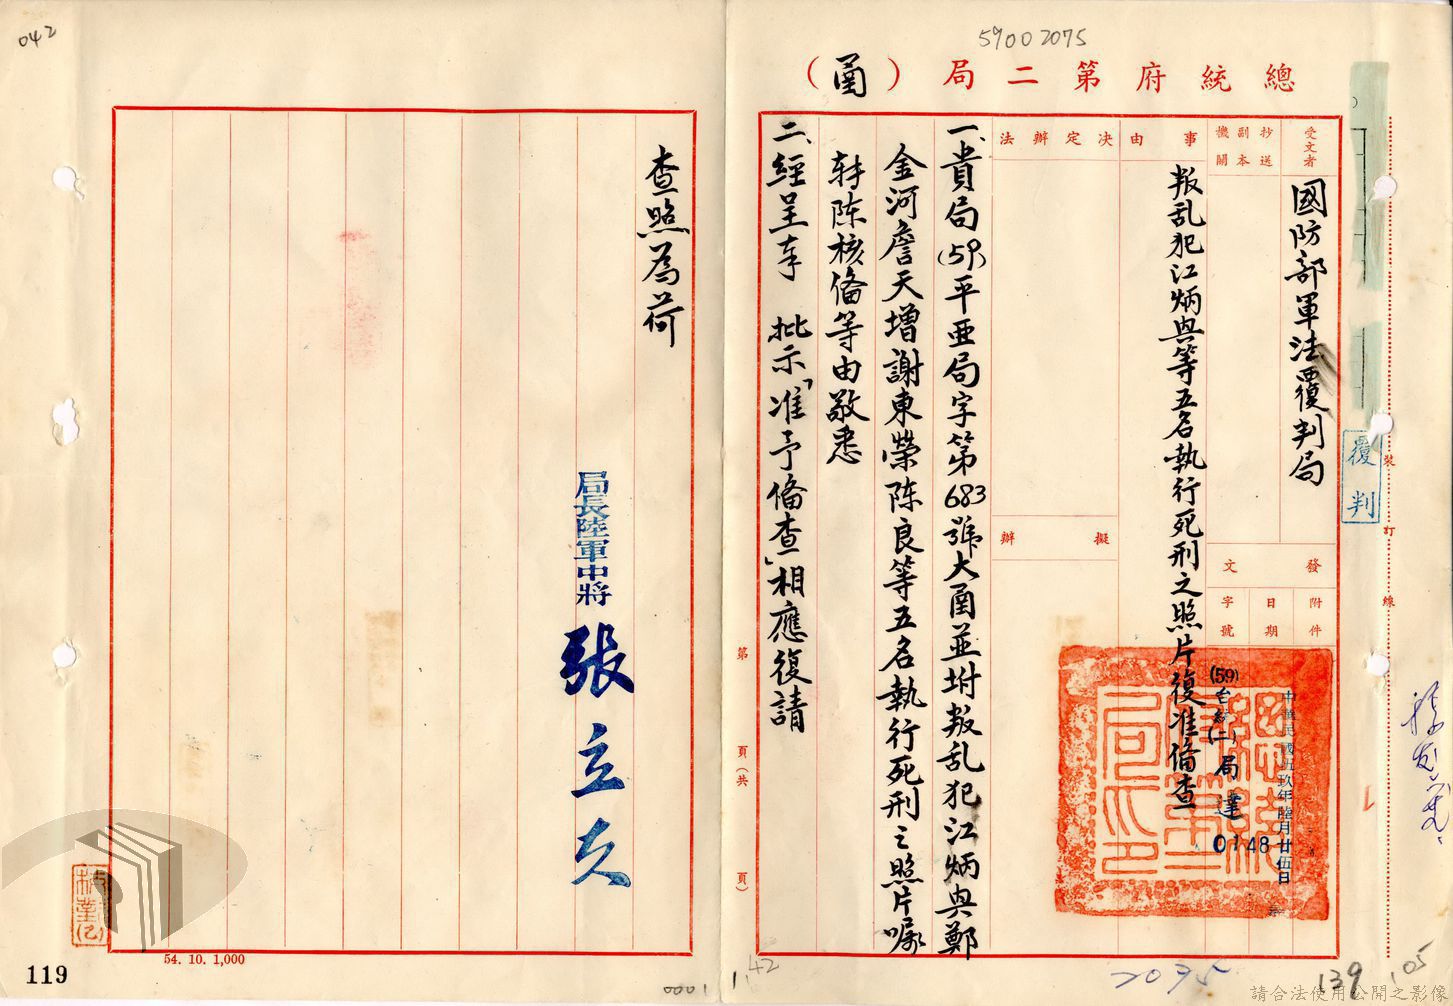 042
59002075
總統府第二局（函）
受文者
國防部軍法覆判局
抄送副本機關
發文
附件
日期
字號
中華民國伍玖年陸月廿伍日
(59)台統(二)局達
0148
事由
叛乱犯江炳興等五名執行死刑之照片復准備查
決定辦法
擬辦
一、貴局(59)平亜局字第683號大函並坿叛乱犯江炳興鄭
金河詹天增謝東榮陈良等五名執行死刑之照片囑
轉陈核備等由敬悉
二、經呈奉　批示「准予備查」相應復請
查照為荷
局長陸軍中將 張立夫
總統府第二局印
覆判
裝訂線
第　頁（共　頁）
54. 10. 1,000
119
0001
1.42
2075
139
105
請合法使用公開之影像